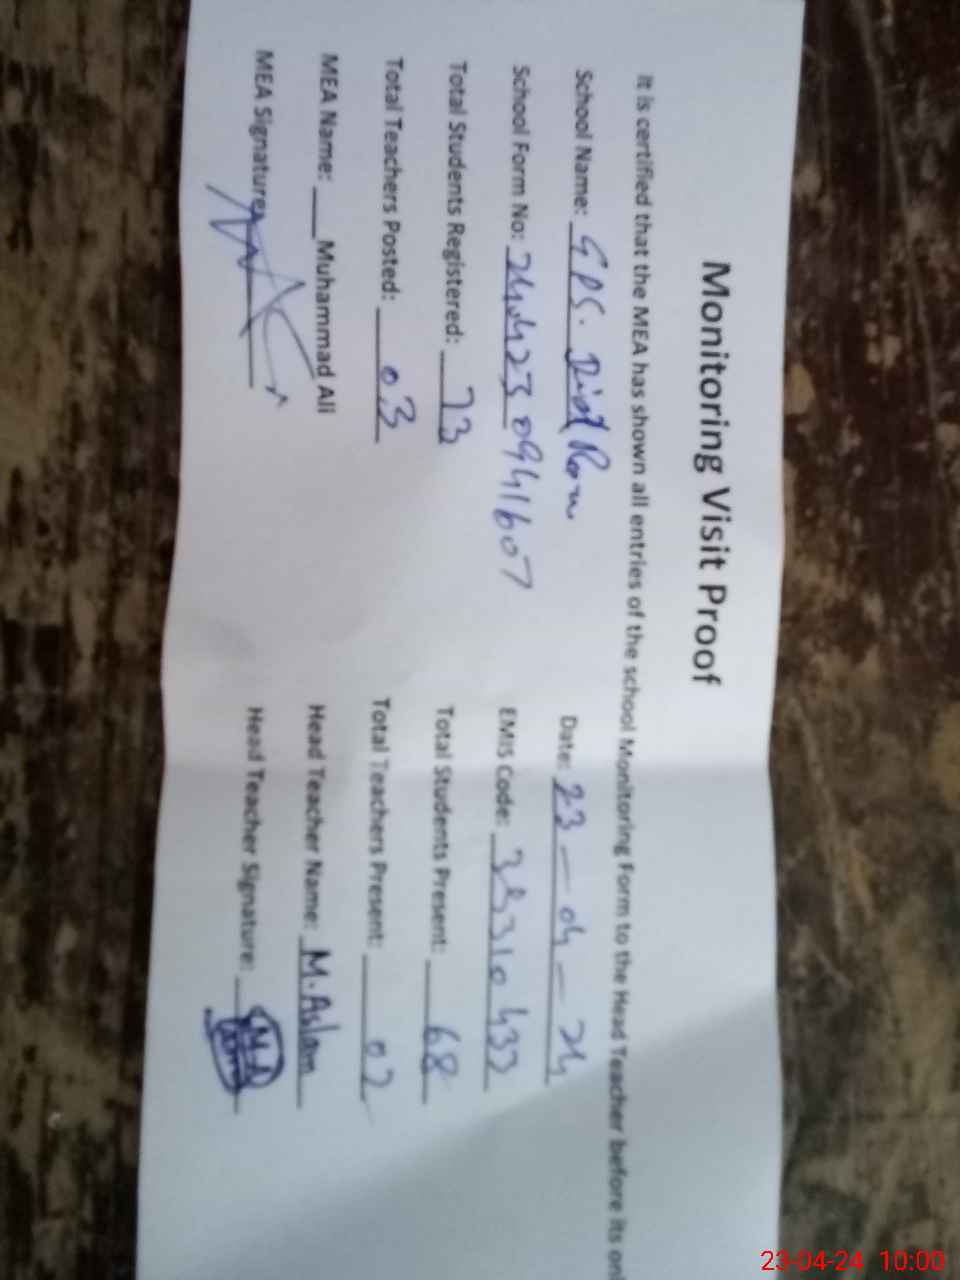 Monitoring Visit Proof
It is certified that the MEA has shown all entries of the school Monitoring Form to the Head Teacher before its
School Name: GPS. Date: 23-04-24
School Form No: EMIS Code:
Total Students Registered: 73 Total Students Present: 68
Total Teachers Posted: 03 Total Teachers Present: 02
MEA Name: Muhammad Ali Head Teacher Name: M. Aslam
MEA Signature: Head Teacher Signature:
23-04-24 10:00